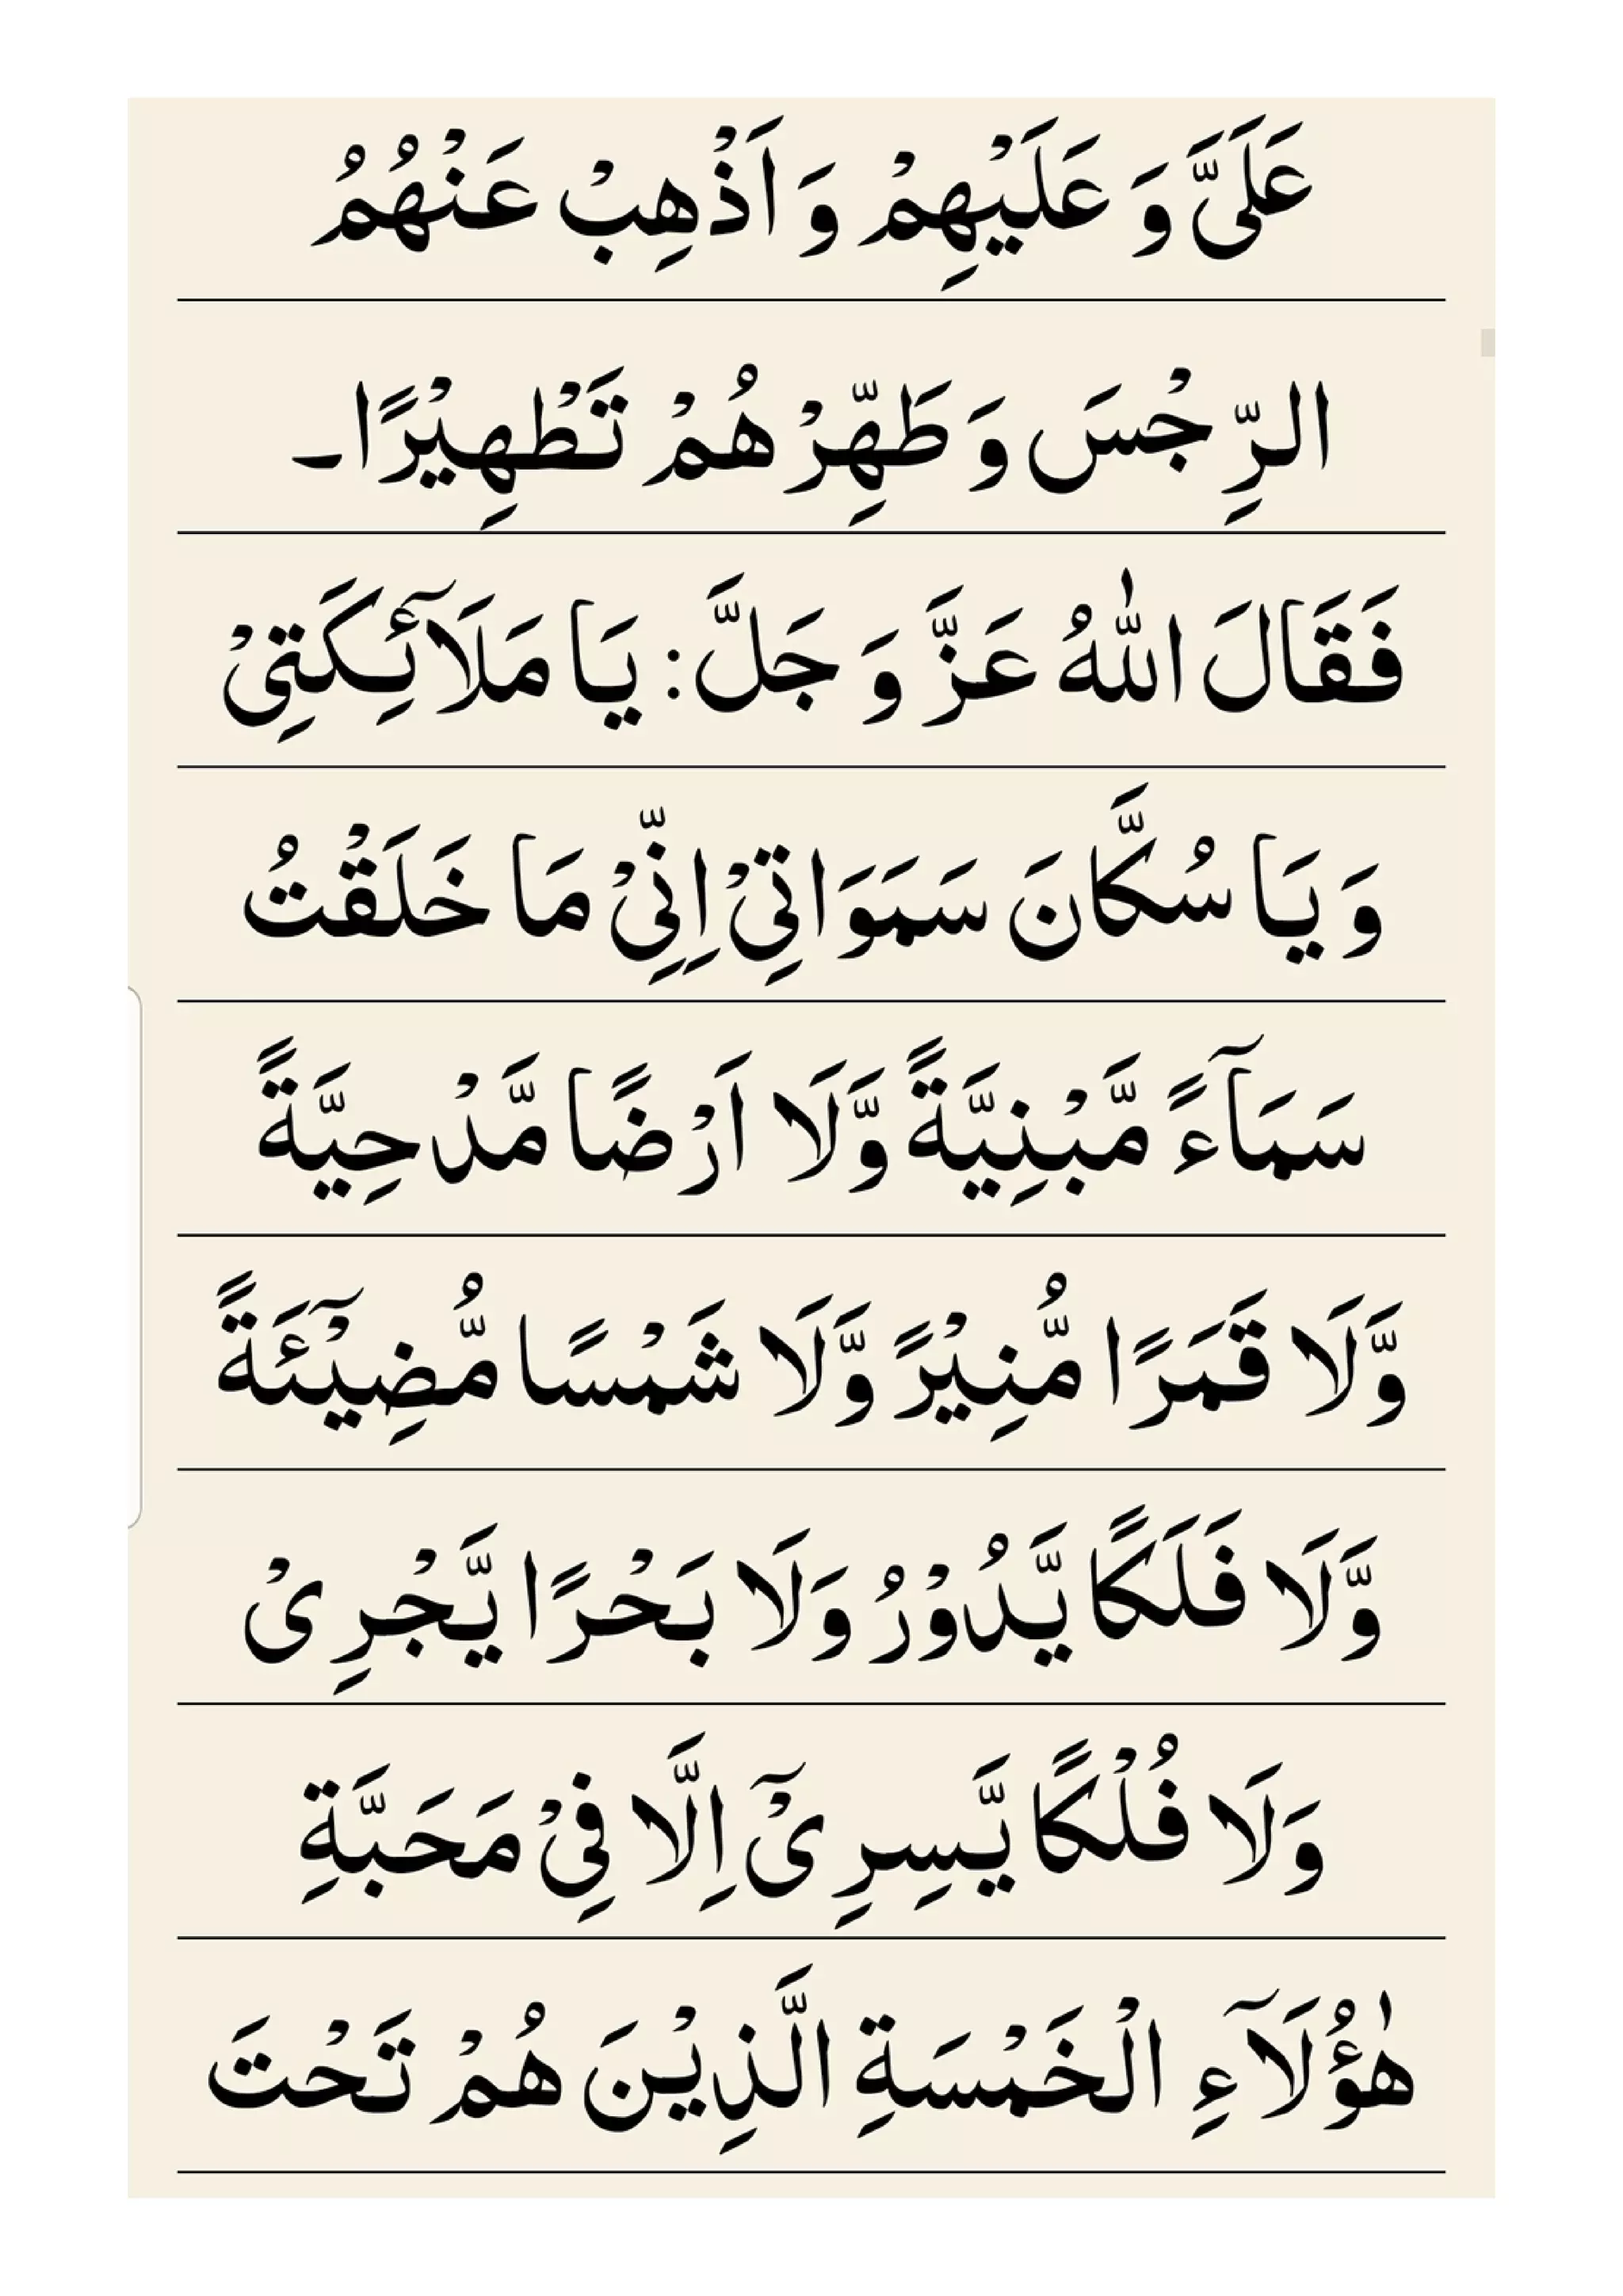 عَلَىَّ وَ عَلَيْهِمْ وَ اَذْهِبْ عَنْهُمُ
الرِّجْسَ وَ طَهِّرْ هُمْ تَطْهِيْرًا۔
فَقَالَ اللّٰهُ عَزَّ وَ جَلَّ: يَا مَلَآئِكَتِىْ
وَ يَا سُكَّانَ سَمَوَاتِىْ اِنِّىْ مَا خَلَقْتُ
سَمَآءً مَّبْنِيَّةً وَّلَا اَرْضًا مَّدْحِيَّةً
وَّلَا قَمَرًا مُّنِيْرً وَّلَا شَمْسًا مُّضِيْٓئَةً
وَّلَا فَلَكًا يَّدُوْرُ وَلَا بَحْرًا يَّجْرِىْ
وَلَا فُلْكًا يَّسِرِىْٓ اِلَّا فِىْ مَحَبَّةِ
هٰؤُلَآءِ الْخَمْسَةِ الَّذِيْنَ هُمْ تَحْتَ